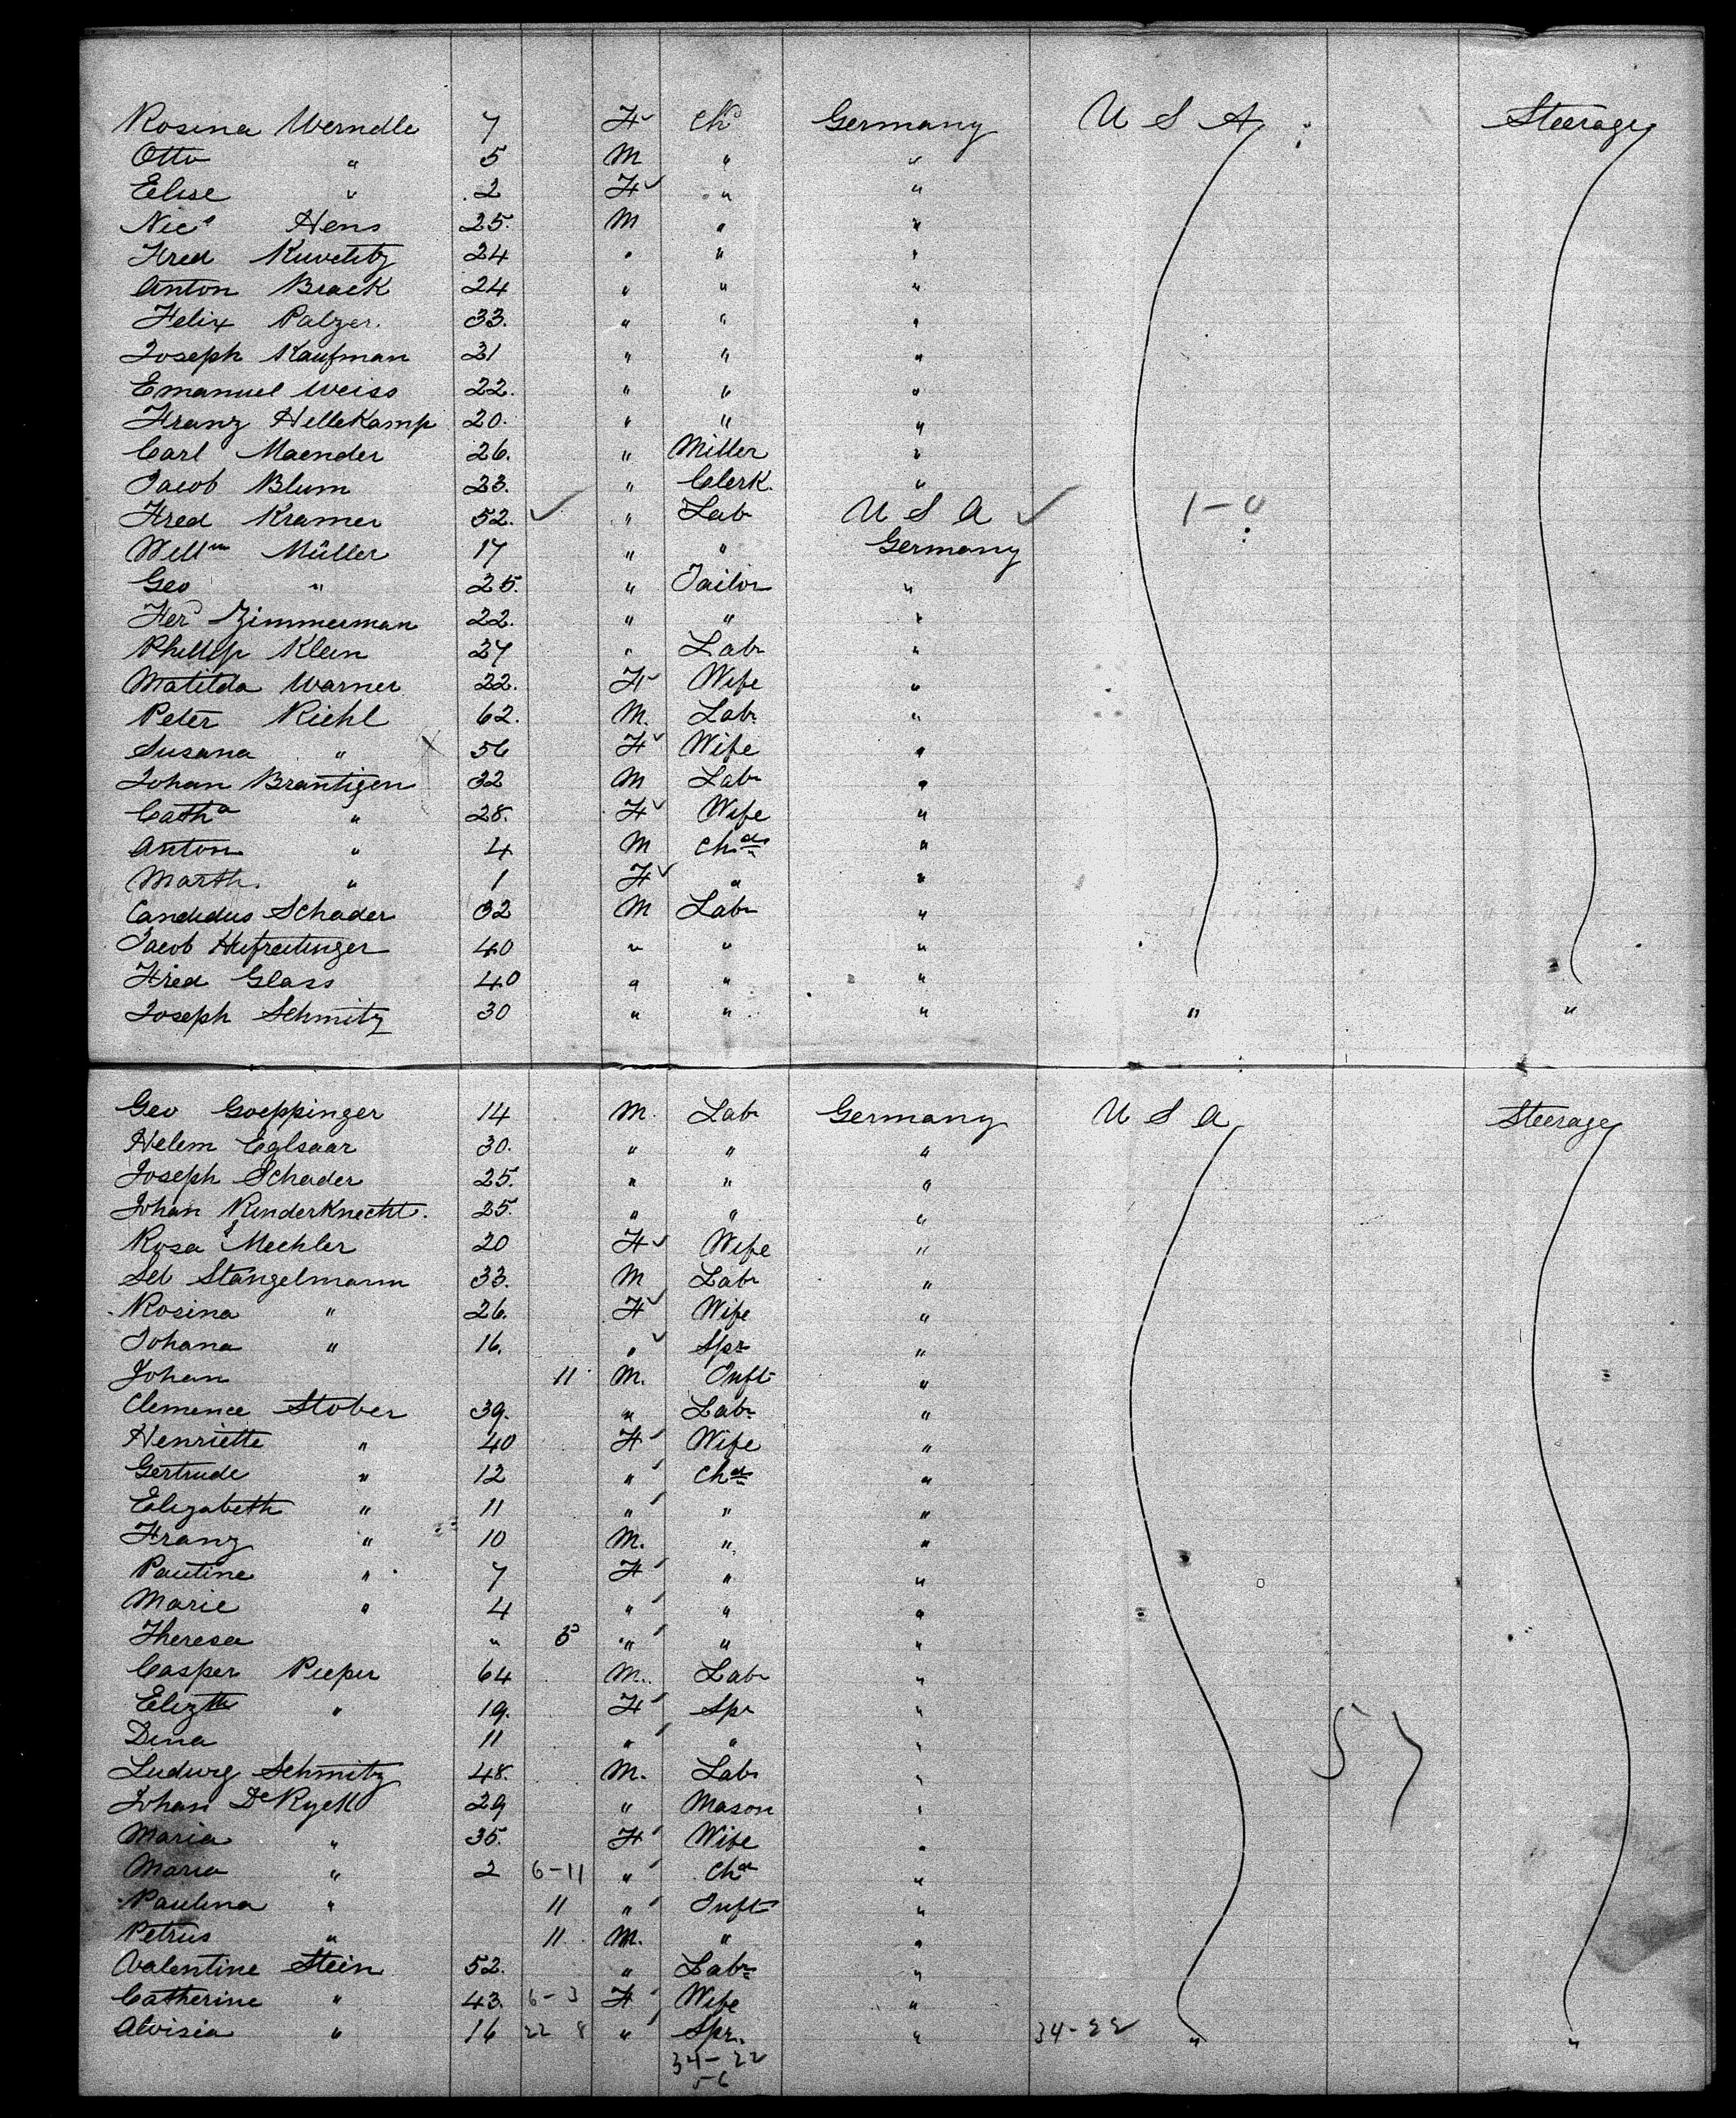 Rosina Werndle 7 F Ch Germany U S A Steerage
Otto " 5 M " "
Elise " 2 F " "
Nics Hens 25. M " "
Fred 24 " " "
Anton Brack 24 " " "
Felix Palzer. 33. " " "
Joseph Kaufman 21 " " "
Emanuel Weiss 22. " " "
Franz Hellekamp 20. " " "
Carl Maender 26. " Miller "
Jacob Blum 23. " Clerk. "
Fred Kramer 52. ✓ " Lab U S A ✓ 1-0
Willm Müller 17 " " Germany
Geo " 25. " Tailor "
Ferd Zimmerman 22. " " "
Phillip Klein 27 " Labr "
Matilda Warner 22. F Wife "
Peter Riehl 62. M. Labr "
Susana " 56 F Wife "
Johan Brantigen 32 M Labr "
Catha " 28. F Wife "
Anton " 4 M Chd "
Marth. " 1 F " "
Candidus Schader 32 M Labr "
Jacob 40 " " "
Fried Glass 40 " " "
Joseph Schmitz 30 " " " " "
Geo Goeppinger 14 M. Labr Germany U S A Steerage
Helem Eglsaar 30. " " "
Joseph Schader 25. " " "
Johan Kinderknecht. 25. " " "
Rosa Mechler 20 F Wife "
Seb Stangelmann 33. M Labr "
Rosina " 26. F Wife "
Johana " 16. " Spr "
Johan 11 M. Inft "
Clemence Stober 39. " Labr "
Henriette " 40 F Wife "
Gertrude " 12 " Chd "
Elizabeth " 11 " " "
Franz " 10 M. " "
Pauline " 7 F " "
Marie " 4 " " "
Theresa " 5 " " "
Casper Pieper 64 M. Labr "
Elizth " 19. F Spr "
Dina 11 " " " 57
Ludwig Schmitz 48. M. Labr "
Johan De Ryck 29 " Mason "
Maria " 35. F Wife "
Maria " 2 6-11 " Chd "
Paulina " 11 " Inft "
Petrus " 11. M. " "
Valentine Stein 52. " Labr "
Catherine " 43. 6-3 F Wife "
Aloisia " 16 22 8 " Spr. " 34-22 " "
34-22
56